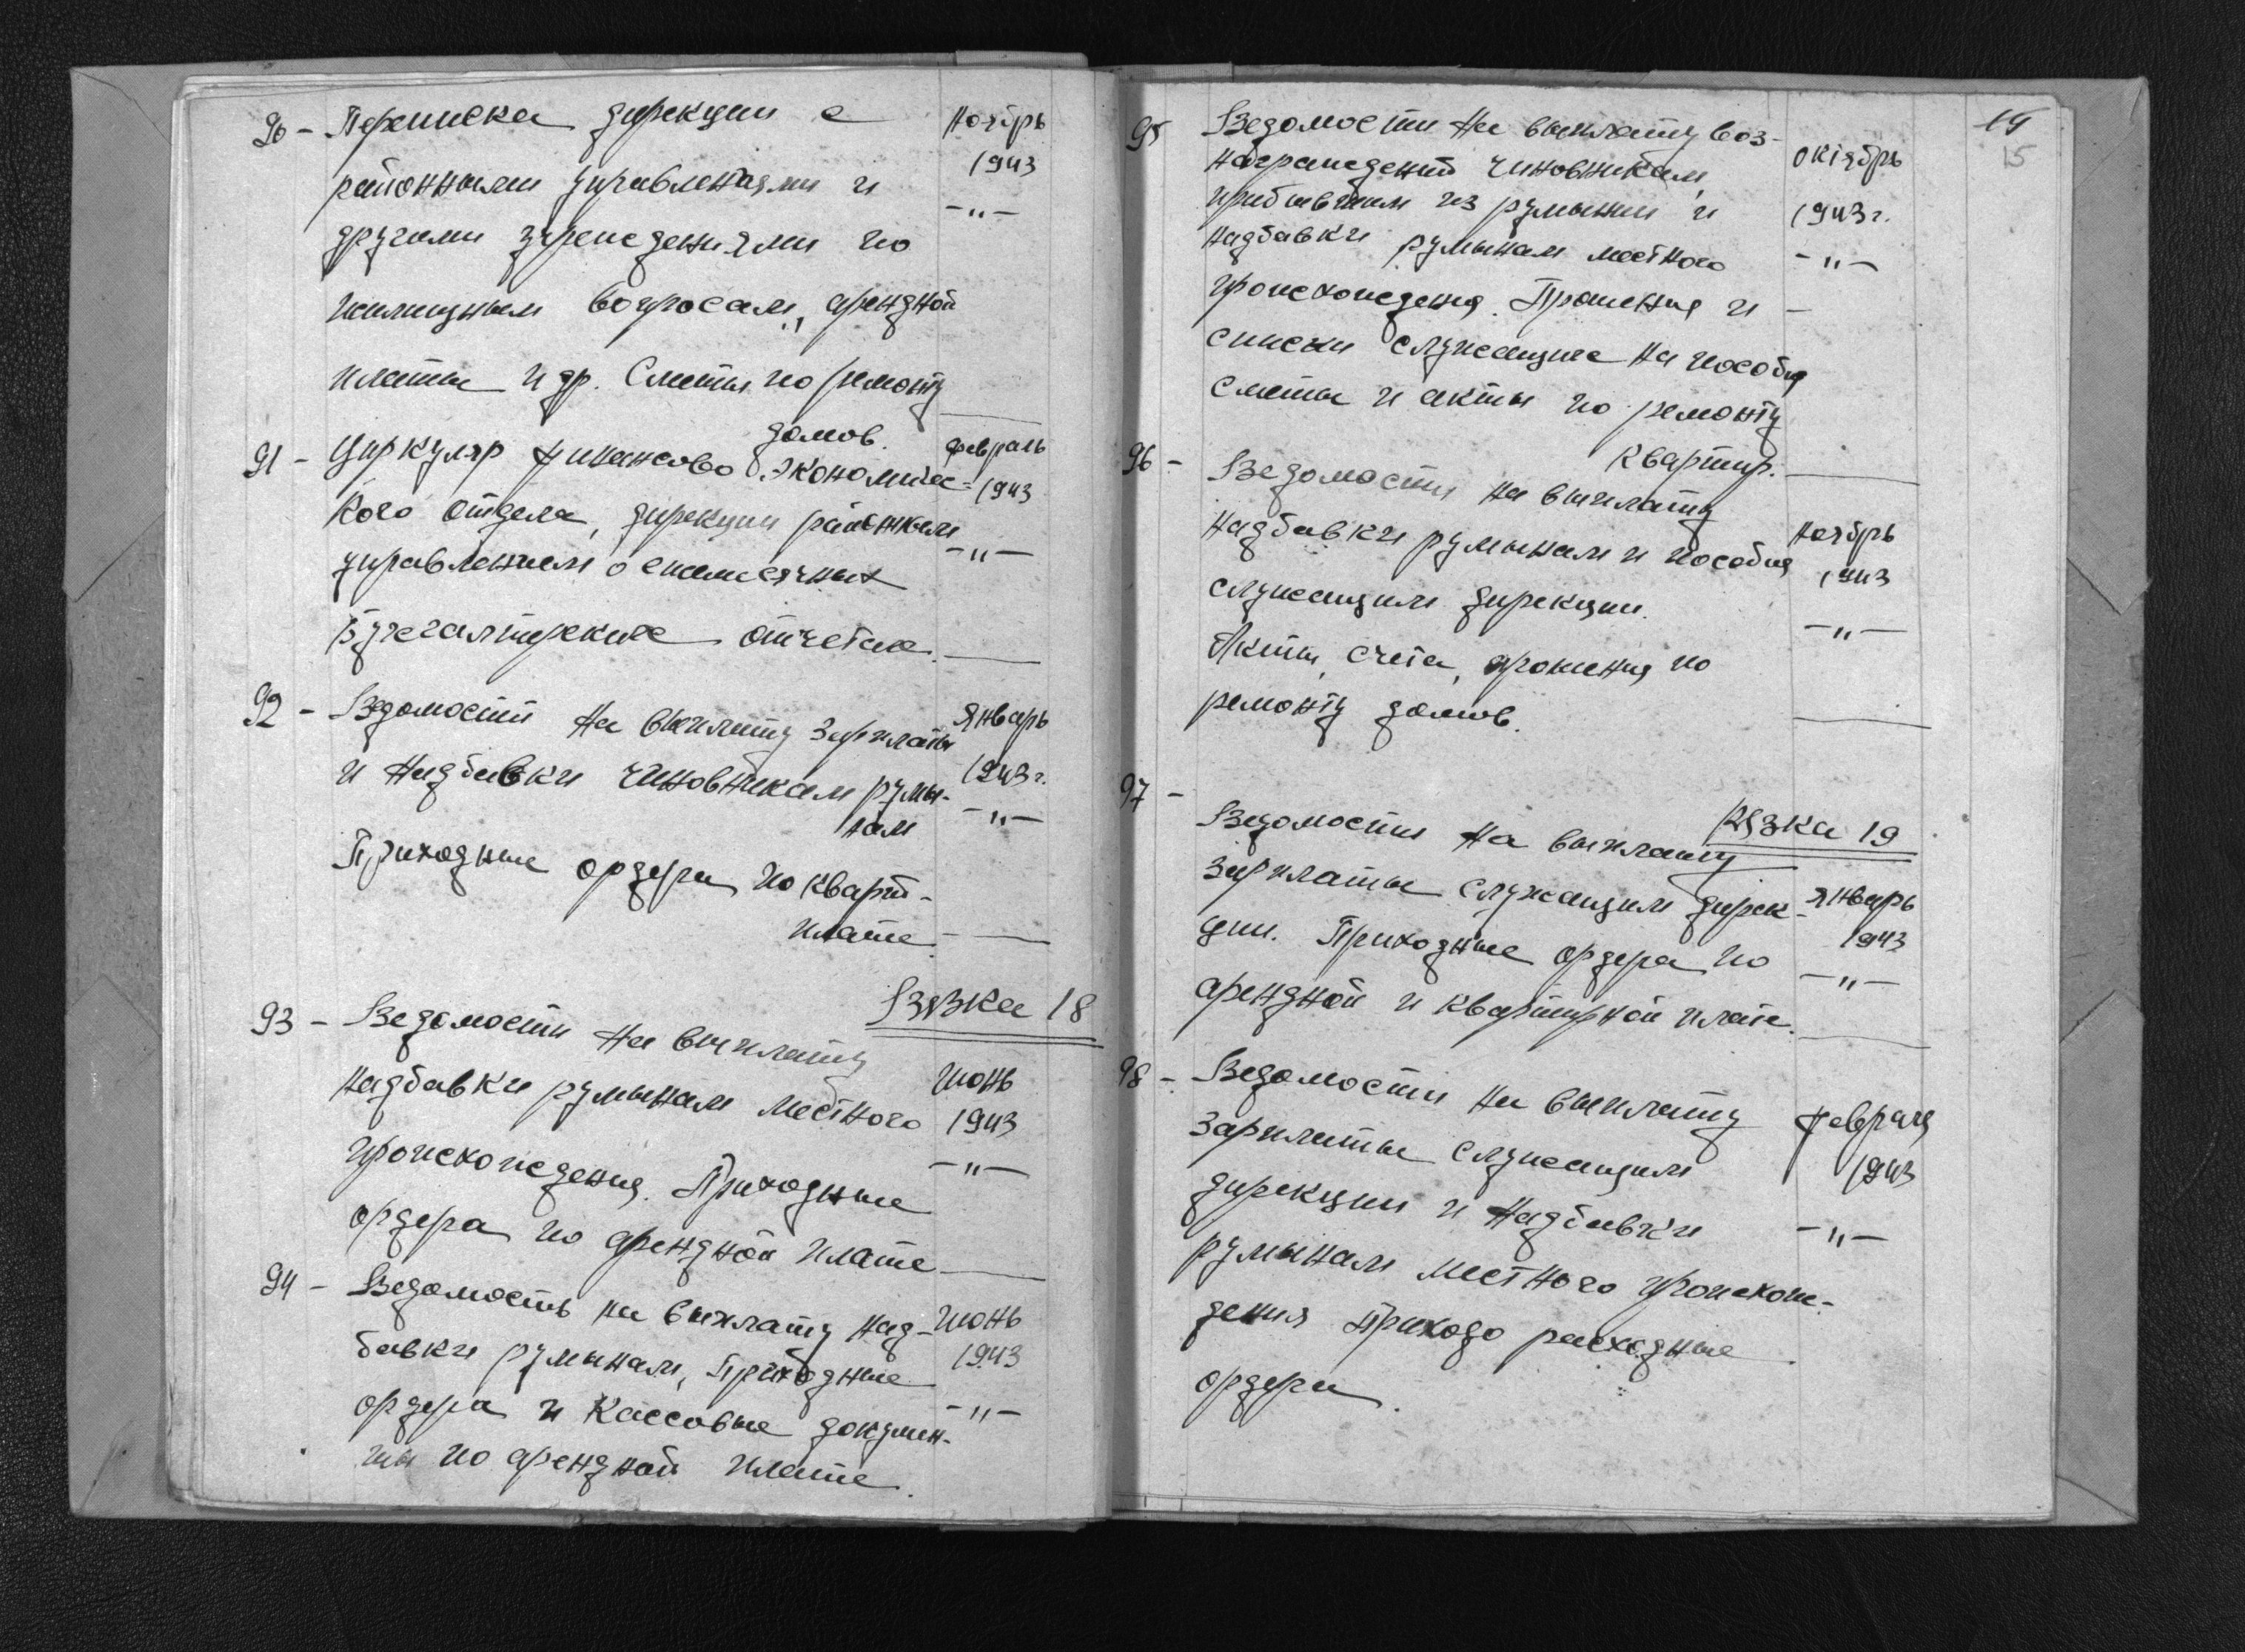 90 - Переписка дирекции с Ноябрь
районными управлениями и 1943
другими учреждениями по -"-
жилищным вопросам, арендной
платы и др. Сметы по ремонту
домов.
91 - Циркуляр финансово экономичес- февраль
кого отдела, дирекции районным 1943
управлением о ежемесячных -"-
Бухгалтерских отчетах.
92 - Ведомости на выплату зарплаты Январь
и надбавки чиновникам румы- 1943 г.
нам -"-
Приходные ордера по кварт-
плате.
Вязка 18
93 - Ведомости на выплату
надбавки румынам местного Июнь 1943
происхождения. Приходные -"-
ордера по арендной плате
94 - Ведомость на выплату над- Июнь
бавки румынам, приходные 1943
ордера и кассовые докумен- -"-
ты по арендной плате.
19
15
95 Ведомости на выплату воз-
награждений чиновникам, октябрь
прибывшим из румынии и 1943 г.
надбавки румынам местного -"-
происхождения. Прошения и -
списки служащих на пособия
сметы и акты по ремонту
квартир.
96 - Ведомости на выплату
надбавки румынам и пособия Ноябрь
служащим дирекции. 1943
Акты, счета, прошения по -"-
ремонту домов.
Вязка 19
97 - Ведомости на выплату
зарплаты служащим дирек- Январь
ции. Приходные ордера по 1943
арендной и квартирной плате. -"-
98 - Ведомости на выплату
зарплаты служащим февраля
дирекции и надбавки 1943
румынам местного происхож- -"-
дения Приходо расходные
ордера.